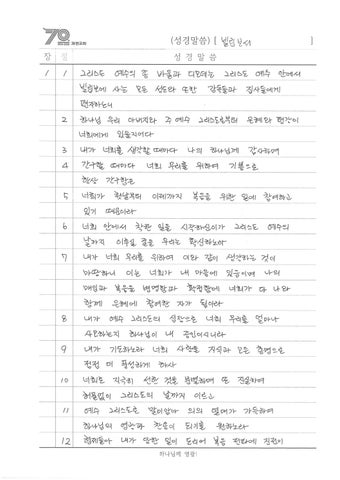 70 과천교회
(성경말씀) [ 빌립보서 ]
장 절 성 경 말 씀
1 1 그리스도 예수의 종 바울과 디모데는 그리스도 예수 안에서
빌립보에 사는 모든 성도와 또한 감독들과 집사들에게
편지하노니
2 하나님 우리 아버지와 주 예수 그리스도로부터 은혜와 평강이
너희에게 있을지어다
3 내가 너희를 생각할 때마다 나의 하나님께 감사하며
4 간구할 때마다 너희 무리를 위하여 기쁨으로
항상 간구함은
5 너희가 첫날부터 이제까지 복음을 위한 일에 참여하고
있기 때문이라
6 너희 안에서 착한 일을 시작하신이가 그리스도 예수의
날까지 이루실 줄을 우리는 확신하노라
7 내가 너희 무리를 위하여 이와 같이 생각하는 것이
마땅하니 이는 너희가 내 마음에 있음이며 나의
매임과 복음을 변명함과 확정함에 너희가 다 나와
함께 은혜에 참여한 자가 됨이라
8 내가 예수 그리스도의 심장으로 너희 무리를 얼마나
사모하는지 하나님이 내 증인이시니라
9 내가 기도하노라 너희 사랑을 지식과 모든 총명으로
점점 더 풍성하게 하사
10 너희로 지극히 선한 것을 분별하며 또 진실하여
허물없이 그리스도의 날까지 이르고
11 예수 그리스도로 말미암아 의의 열매가 가득하여
하나님의 영광과 찬송이 되기를 원하노라
12 형제들아 내가 당한 일이 도리어 복음 전파에 진전이
하나님께 영광!